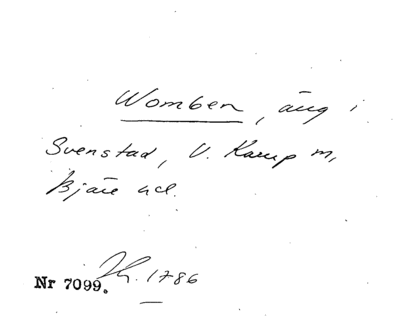 Womben, äng i
Svenstad, V. Karup m,
Bjäre hd.
Nr 7099. 1786